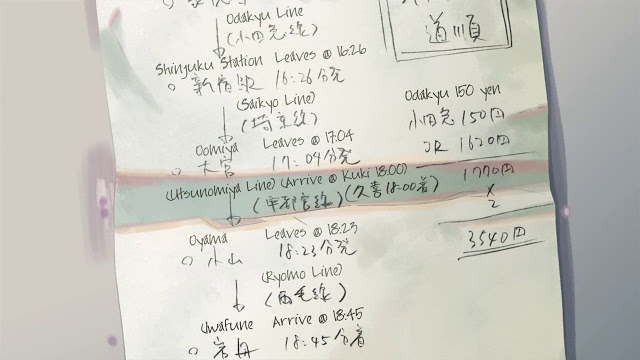 Odakyu Line
(小田急線)
Shinjuku Station Leaves @ 16:26
新宿駅 16:26分発
(Saikyo Line)
(埼京線)
Oomiya Leaves @ 17:04
大宮 17:04分発
(Utsunomiya Line) (Arrive @ Kuki 18:00)
(宇都宮線) (久喜18:00着)
Oyama Leaves @ 18:23
小山 18:23分発
(Ryomo Line)
(両毛線)
Iwafune Arrive @ 18:45
岩舟 18:45分着
道順
Odakyu 150 yen
小田急 150円
JR 1620円
1770円
×
2
3540円